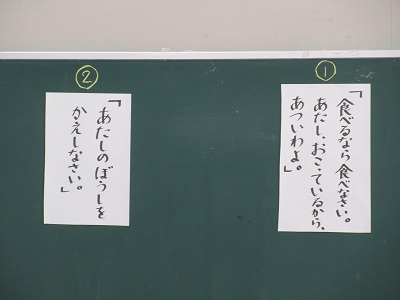 ①
「食べるなら食べなさい。
あたし、おこっているから、
あついわよ。」
②
「あたしのぼうしを
かえしなさい。」